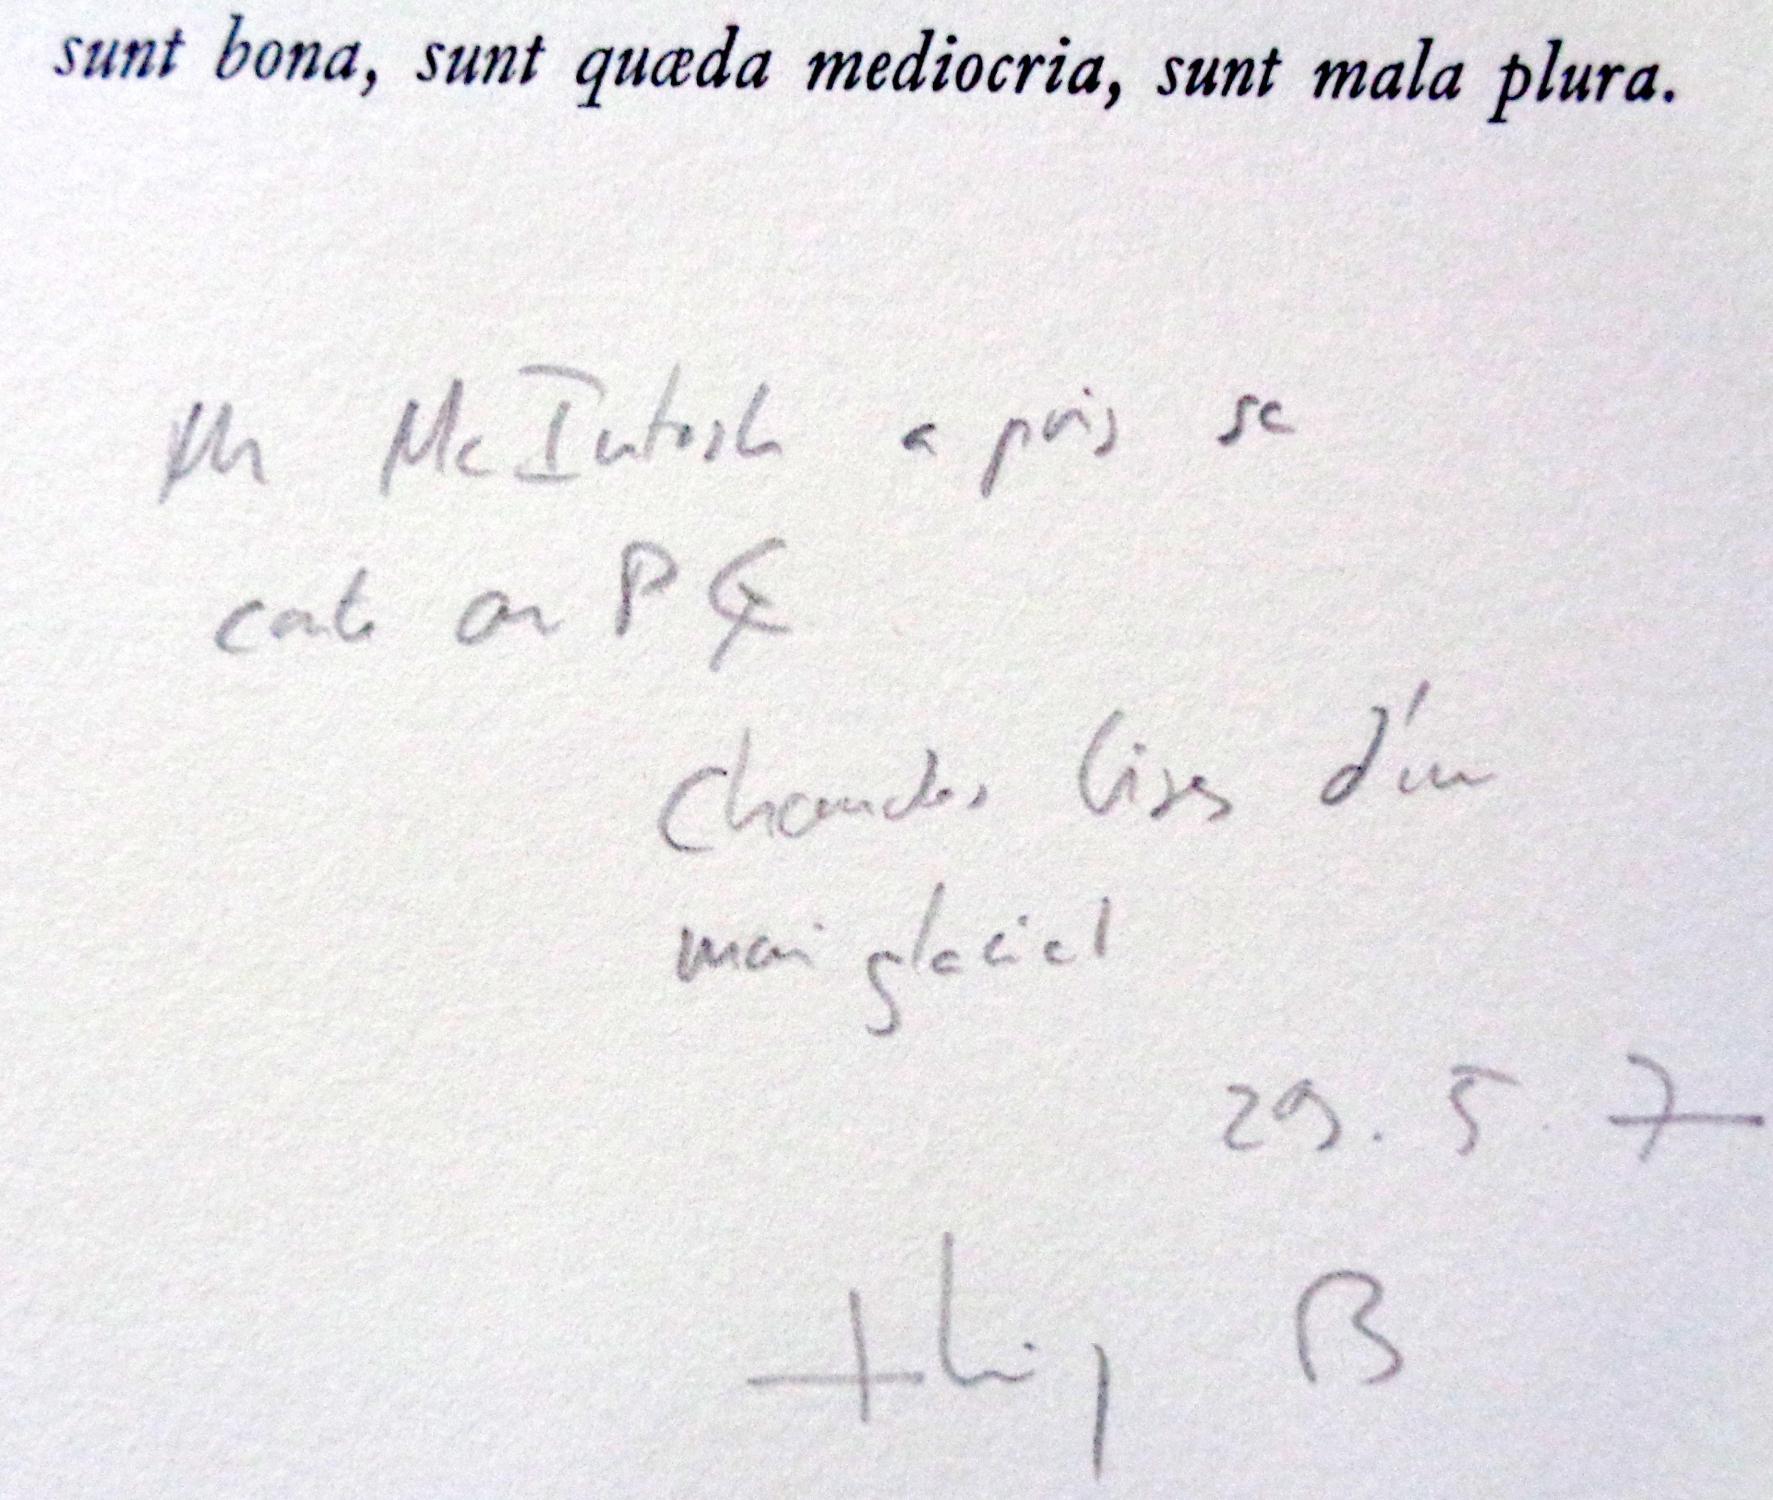 sunt bona, sunt quæda mediocria, sunt mala plura.
Mr McIntosh a pris sa
carte au P
Chaudes bises d'un
mai glacial
29. 5. 7
B